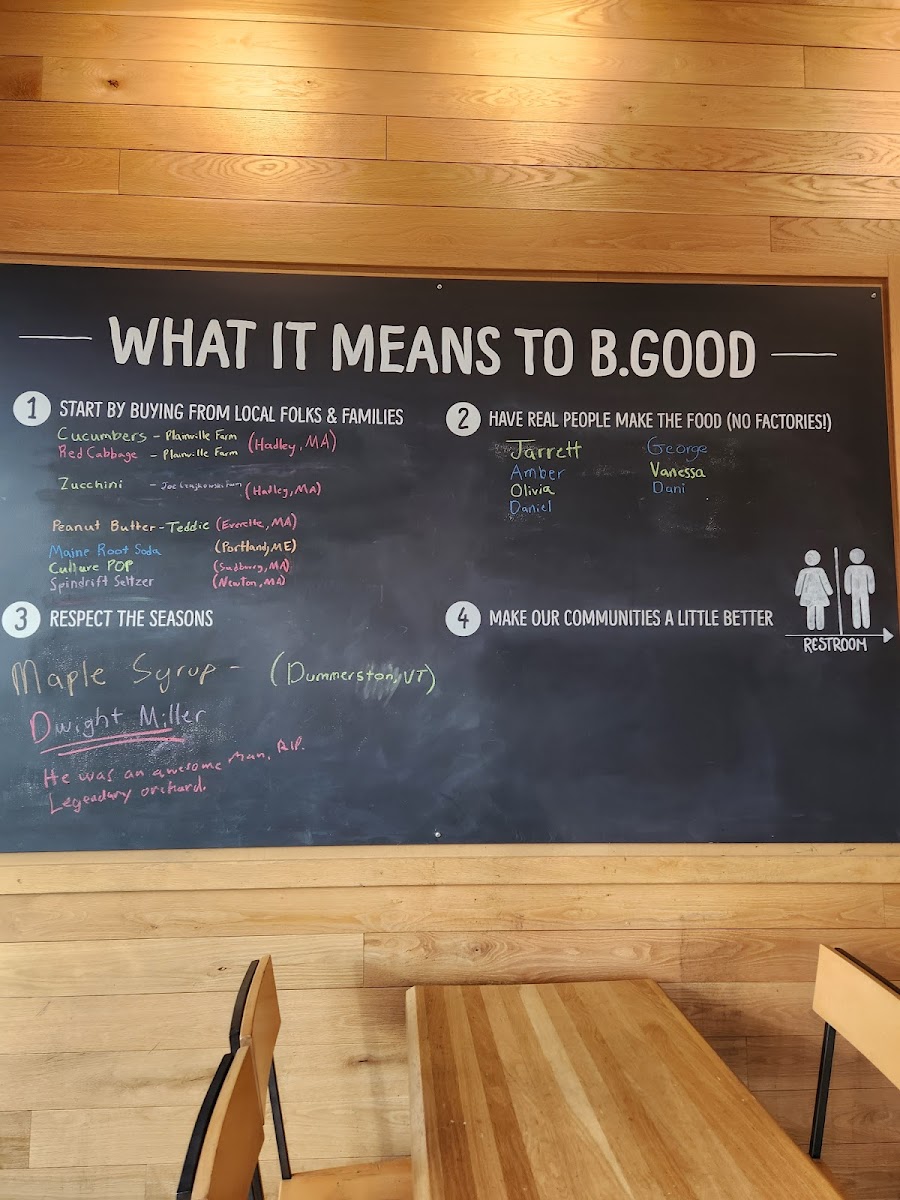 WHAT IT MEANS TO B.GOOD
1 START BY BUYING FROM LOCAL FOLKS & FAMILIES
Cucumbers - Plainville Farm (Hadley, MA)
Red Cabbage - Plainville Farm
Zucchini - Joe (Hadley, MA)
Peanut Butter - Teddie (Everette, MA)
Maine Root Soda (Portland, ME)
Culture POP (Sudburg, MA)
Spindrift Seltzer (Newton, MA)
2 HAVE REAL PEOPLE MAKE THE FOOD (NO FACTORIES!)
Jarrett George
Amber Vanessa
Olivia Dani
Daniel
3 RESPECT THE SEASONS
Maple Syrup - (Dummerston, VT)
Dwight Miller
He was an awesome man, RIP.
Legendary orchard.
4 MAKE OUR COMMUNITIES A LITTLE BETTER
RESTROOM